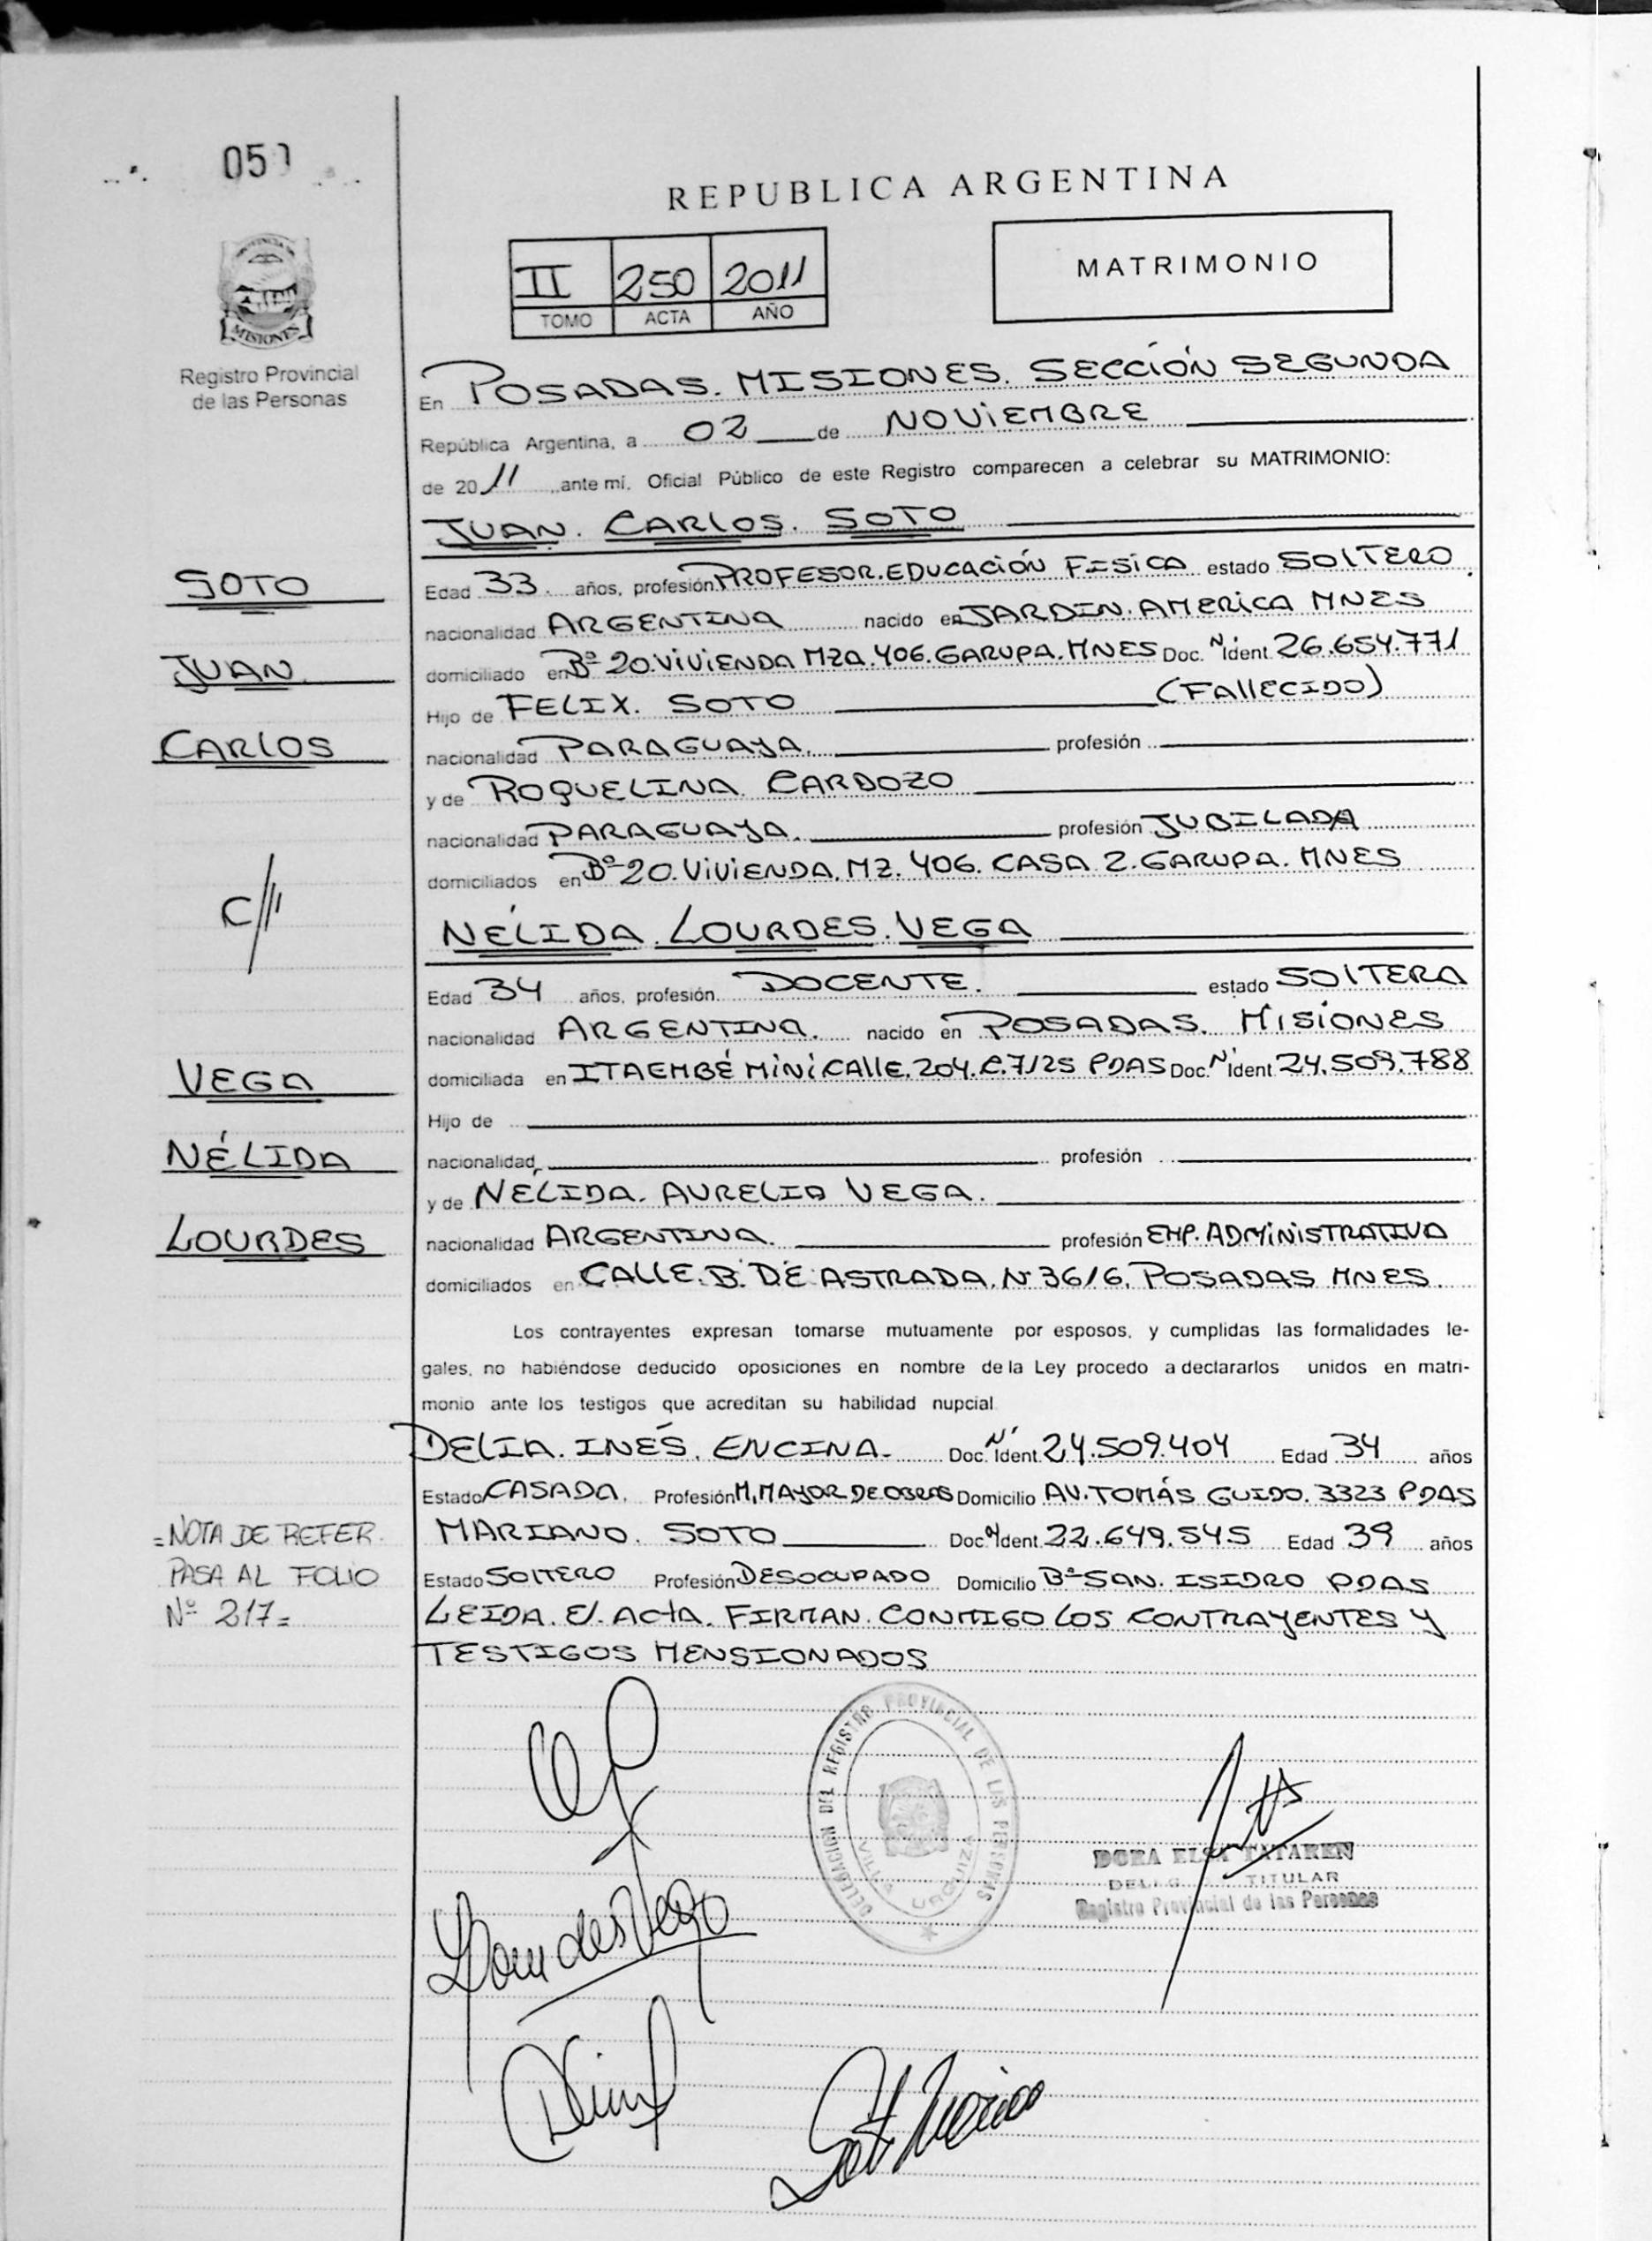 REPUBLICA ARGENTINA
PROVINCIA DE
MISIONES
Registro Provincial
de las Personas
II 250 2011
TOMO ACTA AÑO
MATRIMONIO
En POSADAS. MISIONES. SECCIÓN SEGUNDA
República Argentina, a 02 de NOVIEMBRE
de 2011 ante mí, Oficial Público de este Registro comparecen a celebrar su MATRIMONIO:
JUAN. CARLOS. SOTO
SOTO
JUAN
CARLOS
C///
Edad 33. años, profesión PROFESOR. EDUCACIÓN FISICA estado SOLTERO.
nacionalidad ARGENTINA nacido en JARDIN. AMERICA MNES
domiciliado en Bº 20. VIVIENDA MZA. 406. GARUPA. MNES Doc. Nº Ident. 26.654.771
Hijo de FELIX. SOTO (FALLECIDO)
nacionalidad PARAGUAYA. profesión
y de ROQUELINA CARDOZO
nacionalidad PARAGUAYA. profesión JUBILADA
domiciliados en Bº 20. VIVIENDA. MZ. 406. CASA 2. GARUPA. MNES
NÉLIDA. LOURDES. VEGA
VEGA
NÉLIDA
LOURDES
Edad 34 años, profesión. DOCENTE. estado SOLTERA
nacionalidad ARGENTINA. nacido en POSADAS. MISIONES
domiciliada en ITAEMBÉ MINI CALLE. 204. C. 7125 PDAS Doc. Nº Ident. 24.509.788
Hijo de
nacionalidad profesión
y de NÉLIDA. AURELIA VEGA.
nacionalidad ARGENTINA. profesión EMP. ADMINISTRATIVA
domiciliados en CALLE. B. DE ASTRADA. Nº 3616. POSADAS MNES.
Los contrayentes expresan tomarse mutuamente por esposos, y cumplidas las formalidades le-
gales, no habiéndose deducido oposiciones en nombre de la Ley procedo a declararlos unidos en matri-
monio ante los testigos que acreditan su habilidad nupcial
DELIA. INÉS. ENCINA. Doc. Nº Ident. 24.509.404 Edad 34 años
Estado CASADA. Profesión M. MAYOR DE OBRAS Domicilio AV. TOMÁS GUIDO. 3323 PDAS
MARIANO. SOTO Doc. Nº Ident. 22.649.545 Edad 39 años
Estado SOLTERO Profesión DESOCUPADO Domicilio Bº SAN. ISIDRO PDAS
LEIDA. El. ACTA. FIRMAN. CONMIGO LOS CONTRAYENTES Y
TESTIGOS MENSIONADOS
=NOTA DE REFER.
PASA AL FOLIO
Nº 217=
DELEGACION DEL REGISTRO PROVINCIAL DE LAS PERSONAS
VILLA URQUIZA
Lourdes Vega
DORA ELSA
TITULAR
Registro Provincial de las Personas